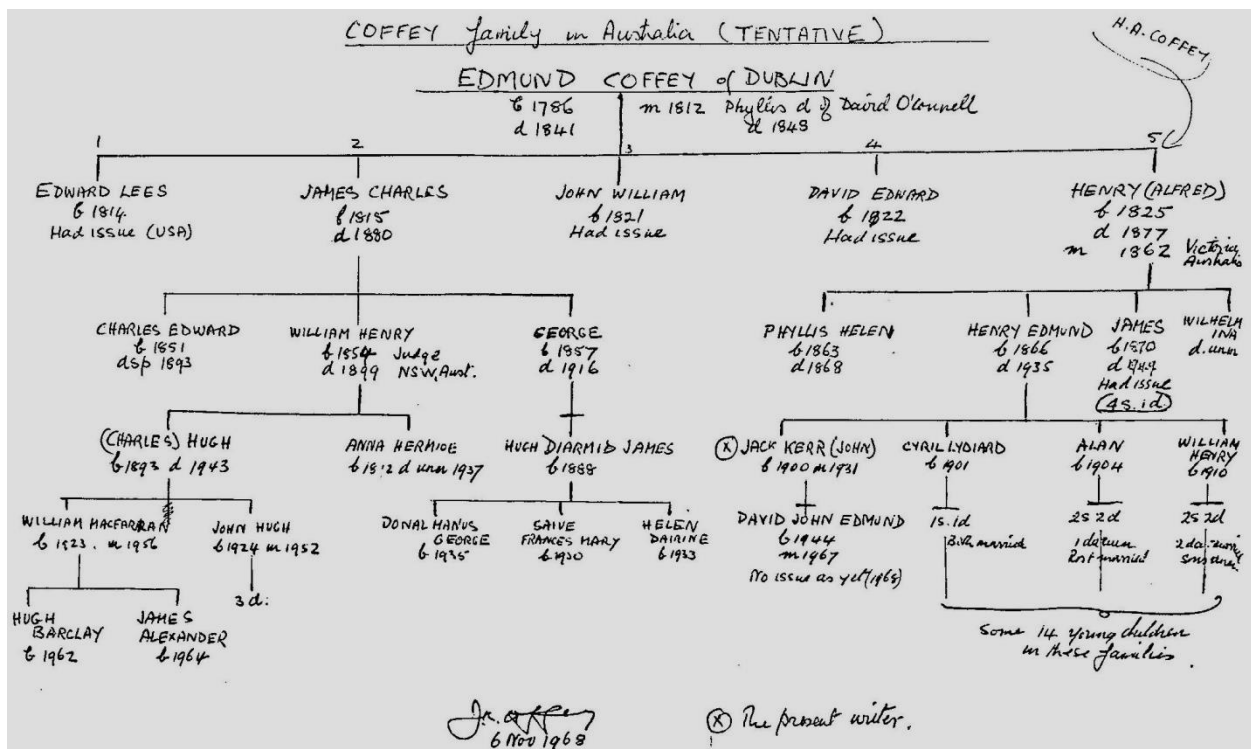 COFFEY family in Australia (TENTATIVE)
H.A. COFFEY
EDMUND COFFEY of DUBLIN
b 1786 m 1812 Phyllis d of David O'Connell
d 1841 d 1848
1 2 3 4 5
EDWARD LEES
b 1814
Had issue (USA)
JAMES CHARLES
b 1815
d 1880
JOHN WILLIAM
b 1821
Had issue
DAVID EDWARD
b 1822
Had issue
HENRY (ALFRED)
b 1825
d 1877
m 1862 Victoria
Australia
CHARLES EDWARD
b 1851
dsp 1893
WILLIAM HENRY
b 1854 Judge
d 1899 NSW, Aust.
GEORGE
b 1857
d 1916
PHYLLIS HELEN
b 1863
d 1868
HENRY EDMUND
b 1866
d 1935
JAMES
b 1870
d 1949
Had issue
(4s. 1d.)
WILHELM
INA
d. unm
(CHARLES) HUGH
b 1893 d 1943
ANNA
d unm 1937
HUGH DIARMID JAMES
b 1888
(X) JACK KERR (JOHN)
b 1900 m 1931
CYRIL LYDIARD
b 1901
ALAN
b 1904
WILLIAM
HENRY
b 1910
WILLIAM MACFARRAN
b 1923. m 1956
JOHN HUGH
b 1924 m 1952
DONAL MANUS
GEORGE
b 1935
SAIVE
FRANCES MARY
b 1930
HELEN
DAIRINE
b 1933
DAVID JOHN EDMUND
b 1944
m 1967
No issue as yet (1968)
1s. 1d
Both married
2s 2d
1 da. unm
Rest married
2s 2d
3 d.
HUGH
BARCLAY
b 1962
JAMES
ALEXANDER
b 1964
Some 14 young children
in these families.
6 Nov 1968
(X) The present writer.